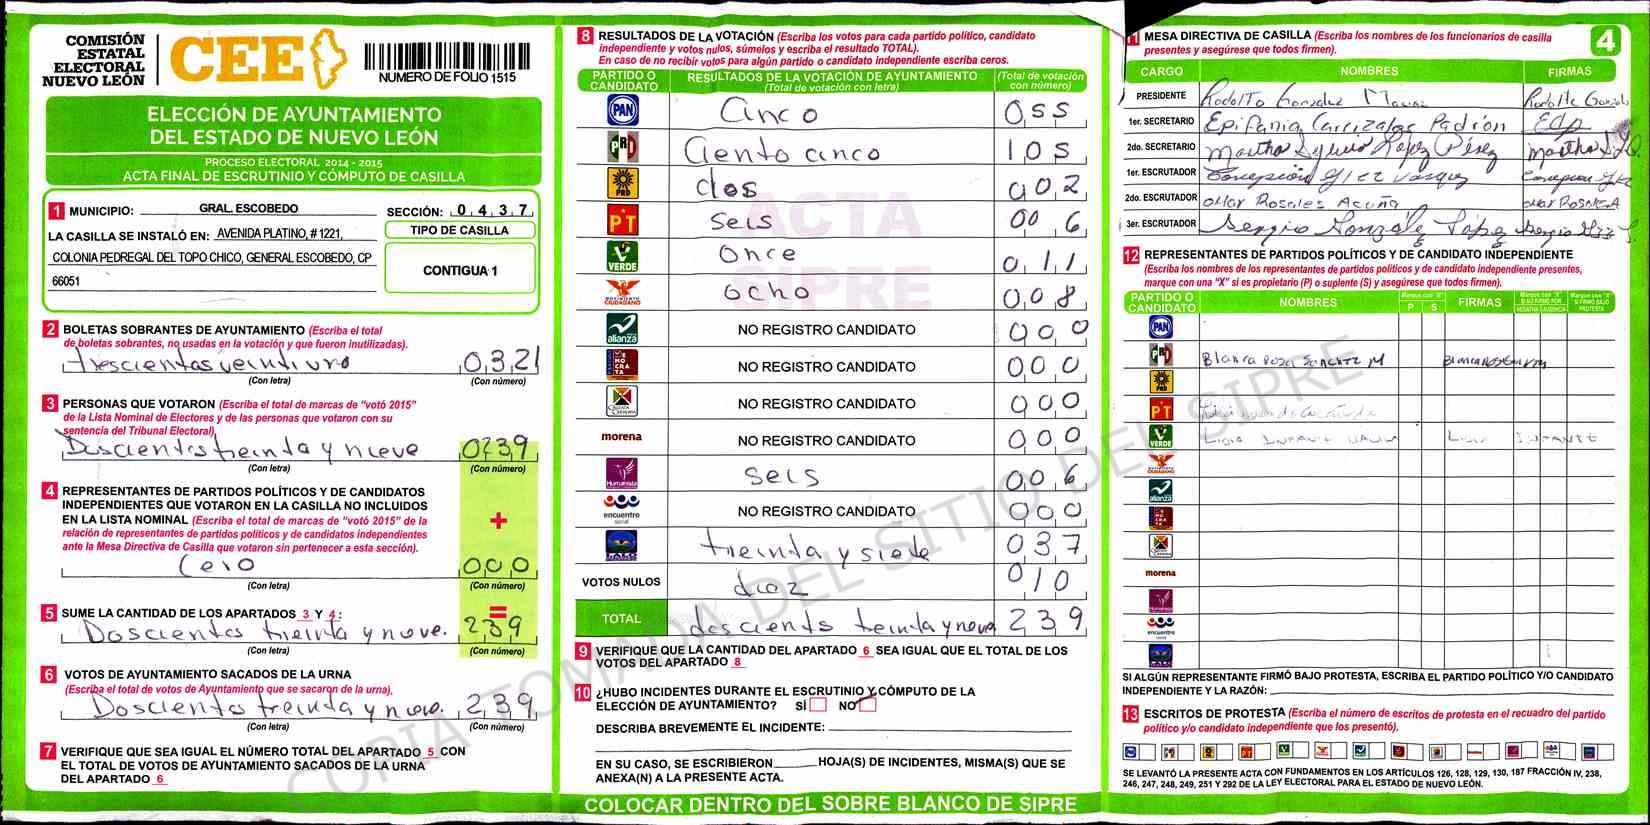 COMISIÓN
ESTATAL
ELECTORAL
NUEVO LEÓN
CEE
NUMERO DE FOLIO 1515
ELECCIÓN DE AYUNTAMIENTO
DEL ESTADO DE NUEVO LEÓN
PROCESO ELECTORAL 2014 - 2015
ACTA FINAL DE ESCRUTINIO Y CÓMPUTO DE CASILLA
1 MUNICIPIO: GRAL. ESCOBEDO SECCIÓN: 0 4 3 7
LA CASILLA SE INSTALÓ EN: AVENIDA PLATINO, # 1221,
COLONIA PEDREGAL DEL TOPO CHICO, GENERAL ESCOBEDO, CP
66051
TIPO DE CASILLA
CONTIGUA 1
2 BOLETAS SOBRANTES DE AYUNTAMIENTO (Escriba el total
de boletas sobrantes, no usadas en la votación y que fueron inutilizadas).
trescientos veintiuno 0321
(Con letra) (Con número)
3 PERSONAS QUE VOTARON (Escriba el total de marcas de “votó 2015”
de la Lista Nominal de Electores y de las personas que votaron con su
sentencia del Tribunal Electoral)
Doscientos treinta y nueve 0239
(Con letra) (Con número)
4 REPRESENTANTES DE PARTIDOS POLÍTICOS Y DE CANDIDATOS
INDEPENDIENTES QUE VOTARON EN LA CASILLA NO INCLUIDOS
EN LA LISTA NOMINAL (Escriba el total de marcas de “votó 2015” de la
relación de representantes de partidos políticos y de candidatos independientes
ante la Mesa Directiva de Casilla que votaron sin pertenecer a esta sección).
+
Cero 000
(Con letra) (Con número)
5 SUME LA CANTIDAD DE LOS APARTADOS 3 Y 4:
=
Doscientos treinta y nove. 239
(Con letra) (Con número)
6 VOTOS DE AYUNTAMIENTO SACADOS DE LA URNA
(Escriba el total de votos de Ayuntamiento que se sacaron de la urna).
Doscientos treinta y nove. 239
(Con letra) (Con número)
7 VERIFIQUE QUE SEA IGUAL EL NÚMERO TOTAL DEL APARTADO 5 CON
EL TOTAL DE VOTOS DE AYUNTAMIENTO SACADOS DE LA URNA
DEL APARTADO 6
8 RESULTADOS DE LA VOTACIÓN (Escriba los votos para cada partido político, candidato
independiente y votos nulos, súmelos y escriba el resultado TOTAL).
En caso de no recibir votos para algún partido o candidato independiente escriba ceros.
PARTIDO O CANDIDATO RESULTADOS DE LA VOTACIÓN DE AYUNTAMIENTO (Total de votación con letra) (Total de votación con número)
PAN Cinco 055
PRD Ciento cinco 105
PRD dos 002
PT seis 006
VERDE Once 011
MOVIMIENTO CIUDADANO ocho 008
alianza NO REGISTRO CANDIDATO 000
DEMOCRATA NO REGISTRO CANDIDATO 000
NO REGISTRO CANDIDATO 000
morena NO REGISTRO CANDIDATO 000
Humanista seis 006
encuentro social NO REGISTRO CANDIDATO 000
treinta y siete 037
VOTOS NULOS diez 010
TOTAL doscientos treinta y nueve 239
ACTA
SIPRE
9 VERIFIQUE QUE LA CANTIDAD DEL APARTADO 6 SEA IGUAL QUE EL TOTAL DE LOS
VOTOS DEL APARTADO 8
10 ¿HUBO INCIDENTES DURANTE EL ESCRUTINIO Y CÓMPUTO DE LA
ELECCIÓN DE AYUNTAMIENTO? SÍ NO
DESCRIBA BREVEMENTE EL INCIDENTE:
EN SU CASO, SE ESCRIBIERON HOJA(S) DE INCIDENTES, MISMA(S) QUE SE
ANEXA(N) A LA PRESENTE ACTA.
COLOCAR DENTRO DEL SOBRE BLANCO DE SIPRE
MESA DIRECTIVA DE CASILLA (Escriba los nombres de los funcionarios de casilla
presentes y asegúrese que todos firmen).
4
CARGO NOMBRES FIRMAS
PRESIDENTE Rodolfo Gonzalez Rodolfo Gonzal
1er. SECRETARIO Epifania Carrizales Padron
2do. SECRETARIO Martha Sylvia López Pérez Martha
1er. ESCRUTADOR Concepción Glez Vasquez Concepcion
2do. ESCRUTADOR Omar Rosales Acuña Omar Rosales A
3er. ESCRUTADOR Sergio González López Sergio
12 REPRESENTANTES DE PARTIDOS POLÍTICOS Y DE CANDIDATO INDEPENDIENTE
(Escriba los nombres de los representantes de partidos políticos y de candidato independiente presentes,
marque con una “X” si es propietario (P) o suplente (S) y asegúrese que todos firmen).
PARTIDO O CANDIDATO NOMBRES P S FIRMAS
PAN
PRD Blanca Rosa Sanchez M
PRD
PT
VERDE Lidia Infante Lidia Infante
CIUDADANO
alianza
morena
Humanista
encuentro
SI ALGÚN REPRESENTANTE FIRMÓ BAJO PROTESTA, ESCRIBA EL PARTIDO POLÍTICO Y/O CANDIDATO
INDEPENDIENTE Y LA RAZÓN:
13 ESCRITOS DE PROTESTA (Escriba el número de escritos de protesta en el recuadro del partido
político y/o candidato independiente que los presentó).
SE LEVANTÓ LA PRESENTE ACTA CON FUNDAMENTOS EN LOS ARTÍCULOS 126, 128, 129, 130, 187 FRACCIÓN IV, 238,
246, 247, 248, 249, 251 Y 292 DE LA LEY ELECTORAL PARA EL ESTADO DE NUEVO LEÓN.
COPIA TOMADA DEL SITIO DEL SIPRE